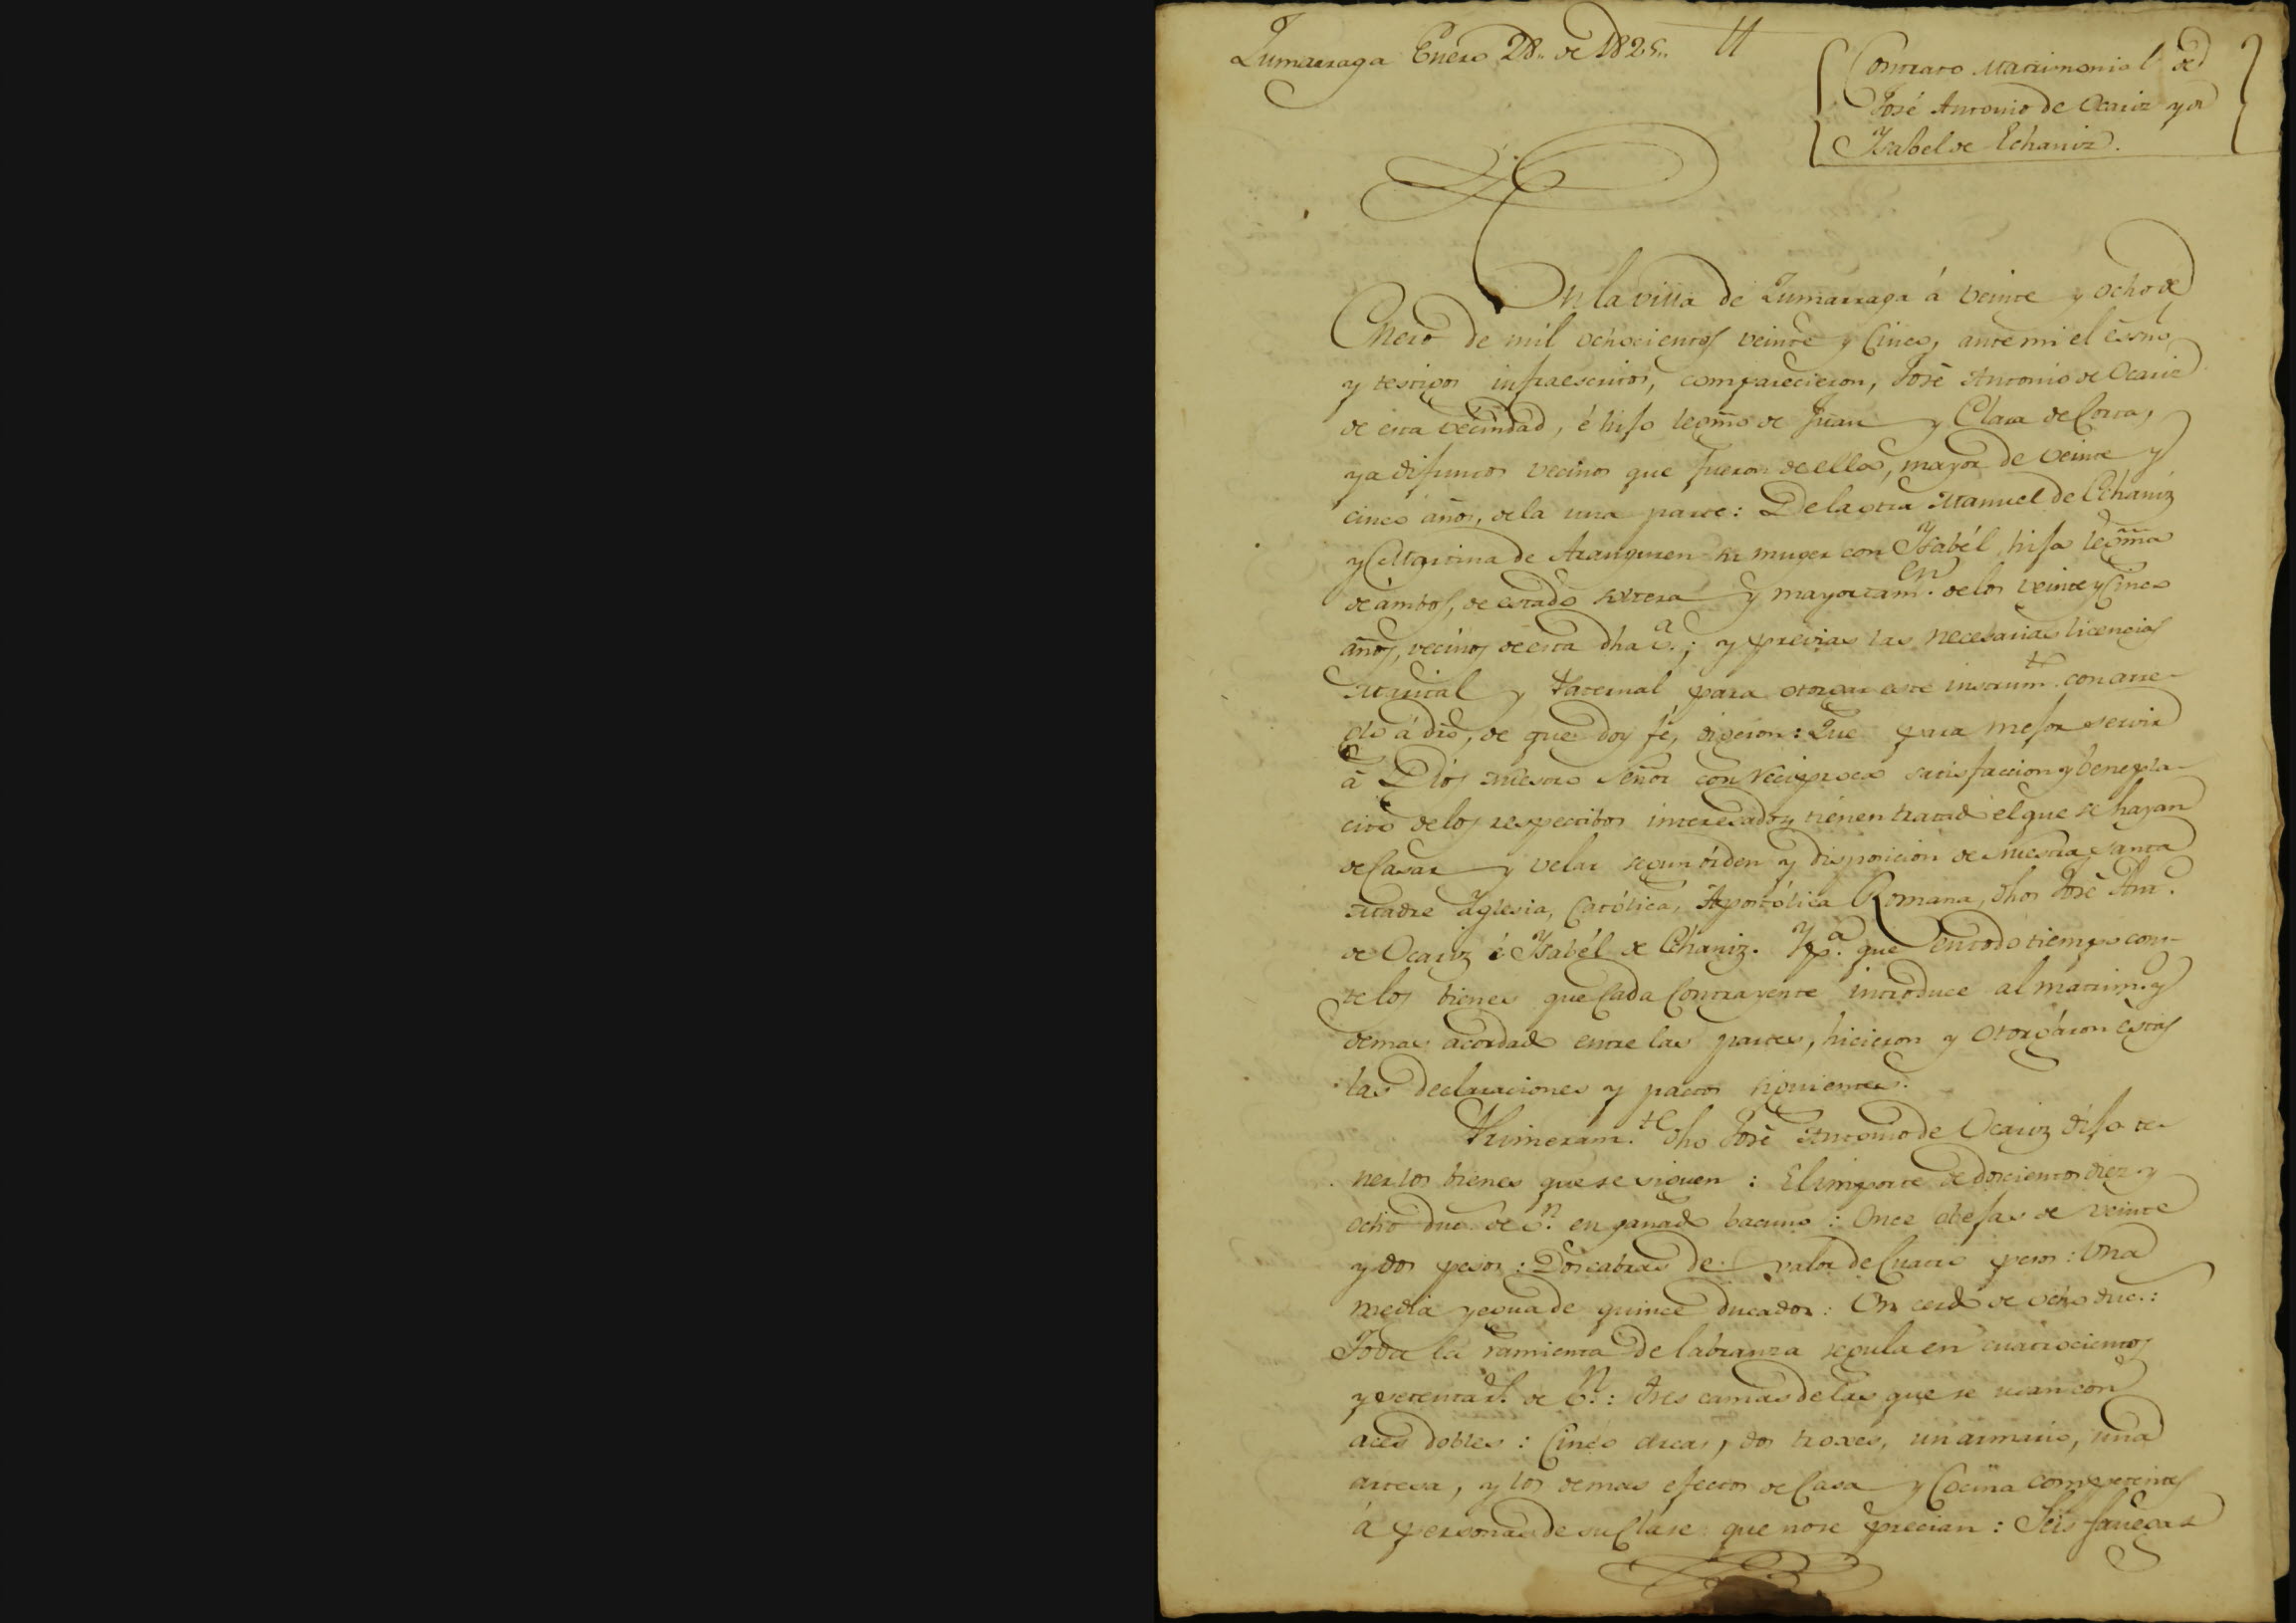 Zumarraga Enero 28.. de 1825..
Contrato Matrimonial de
José Antonio de Ocariz y de
Ysabel de Echaniz.
En la villa de Zumarraga á veinte y ocho de
Enero de mil ochocientos veinte y Cinco, ante mi el essno
y testigos infraescritos, comparecieron, José Antonio de Ocariz
de esta vecindad, é hijo legmo de Juan y Clara de Corta,
ya difuntos vecinos que fueron de ella, mayor de veinte y
cinco años, de la una parte: De la otra Manuel de Echaniz
y Martina de Aranguren su muger con Ysabél hija legma
de ambos, de estado soltera y mayor tamen. de los veinte y Cinco
años, vecinos de esta dha va.; y previas las necesarias licencias
Marital y Paternal para otorgar este instrumto. con arre-
glo á dro, de que doy fé, digeron: Que para mejor servir
á Dios nuestro Señor con reciproca satisfaccion y benepla-
cito de los respectibos interesados tienen tratado el que se hayan
de Casar y velar segun órden y disposicion de nuestra Santa
Madre Yglesia, Católica, Apostólica Romana, dhos José Ant.
de Ocariz é Ysabél de Echaniz. Y pa. que en todo tiempo cons-
te los bienes que Cada Contrayente introduce al matrim. y
demas acordado entre las partes, hicieron y otorgáron estas
las declaraciones y pactos siguientes.
Primeramte. dho José Antonio de Ocariz dijo te-
ner los bienes que se siguen: El importe de doscientos diez y
ocho duc. de vn. en ganado bacuno: Once obejas de veinte
y dos pesos: Dos cabras de valor de Cuatro pesos: Una
media yegua de quince ducados: Un cerdo de ocho duc.:
Toda la ramienta de labranza regula en cuatrocientos
y setenta rs. de vn.: tres camas de las que se usan con
aces dobles: Cinco arcas, dos troxes, un armario, una
artesa, y los demas efectos de Casa y Cocina competentes
á personas de su Clase que no se precian: Seis fanegas